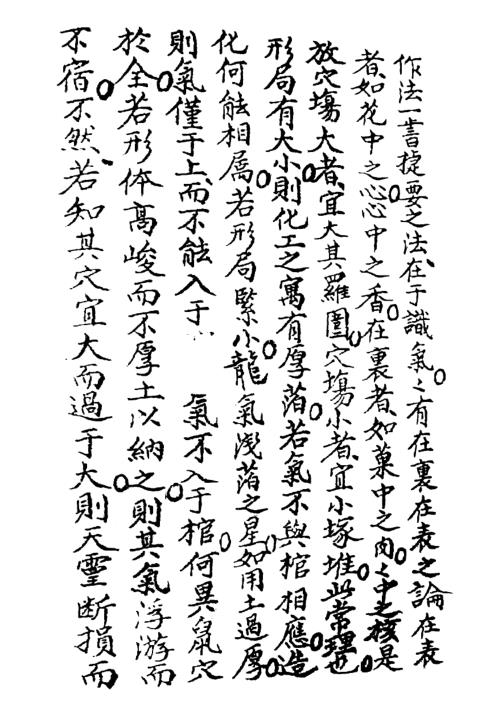 作法一書捷要之法、在于識氣。々有在裏在表之論在表
者如花中之心。心中之香。在裏者如菓中之肉。々中之核是
放穴塲大者、宜大其羅圍。穴塲小者、宜小塚堆。此常理也。
形局有大小。則化工之寓有厚薄。若氣不與棺相應。造
化何能相屬。若形局緊小。龍氣淺薄之星。如用土過厚。
則氣僅于上、而不能入于‥ 氣不入于棺。何異鼠穴
於全。若形体高峻而不厚土以納之。則其氣浮游而
不宿。不然、若知其穴宜大而過于大則天靈断損而